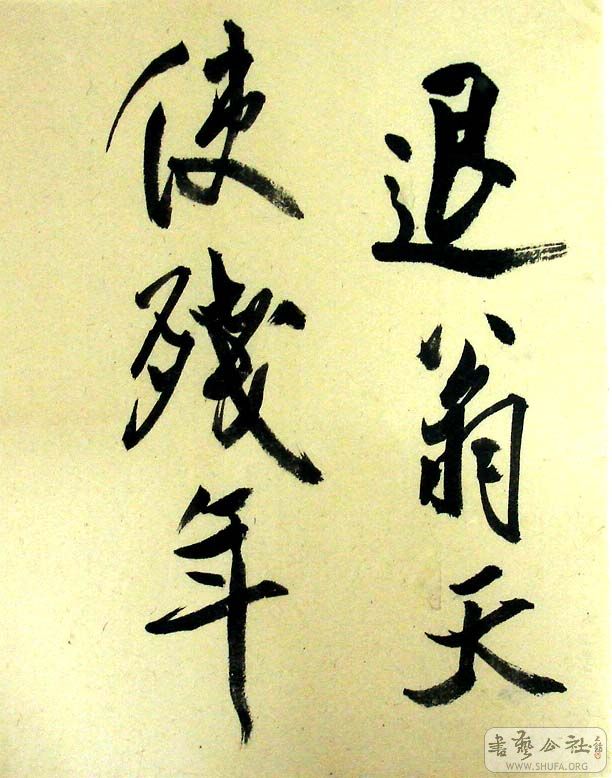 退翁天
使殘年
書藝公社
WWW.SHUFA.ORG